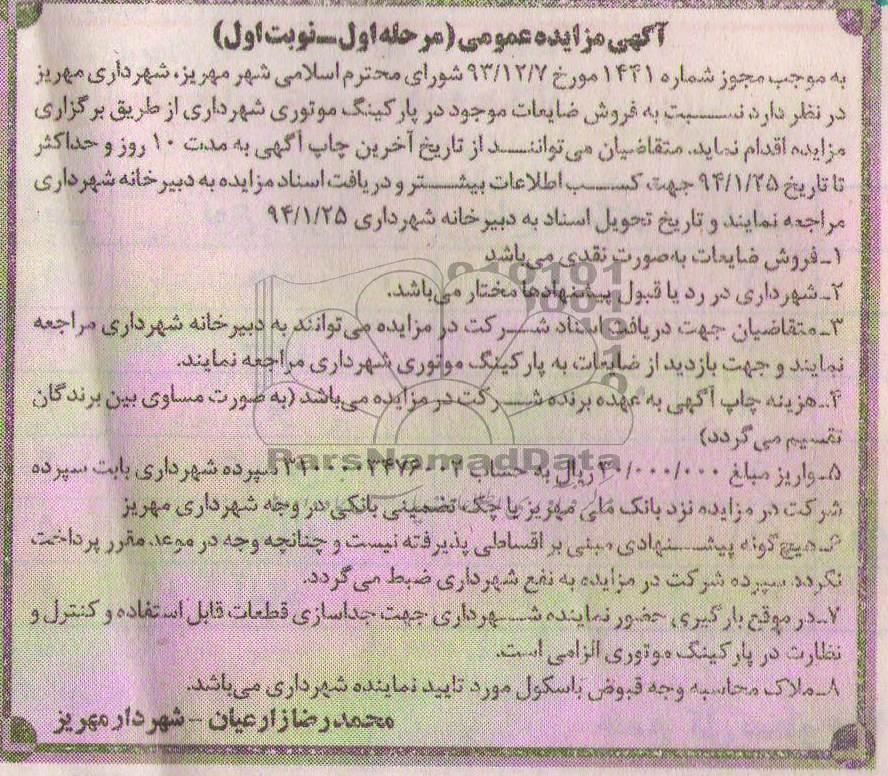 آگهی مزایده عمومی (مرحله اول ـ نوبت اول)
به موجب مجوز شماره ۱۴۴۱ مورخ ۹۳/۱۲/۷ شورای محترم اسلامی شهر مهریز، شهرداری مهریز
در نظر دارد نسبت به فروش ضایعات موجود در پارکینگ موتوری شهرداری از طریق برگزاری
مزایده اقدام نماید. متقاضیان می‌توانند از تاریخ آخرین چاپ آگهی به مدت ۱۰ روز و حداکثر
تا تاریخ ۹۴/۱/۲۵ جهت کسب اطلاعات بیشتر و دریافت اسناد مزایده به دبیرخانه شهرداری
مراجعه نمایند و تاریخ تحویل اسناد به دبیرخانه شهرداری ۹۴/۱/۲۵
۱ـ فروش ضایعات به‌صورت نقدی می‌باشد
۲ـ شهرداری در رد یا قبول پیشنهادها مختار می‌باشد.
۳ـ متقاضیان جهت دریافت اسناد شرکت در مزایده می‌توانند به دبیرخانه شهرداری مراجعه
نمایند و جهت بازدید از ضایعات به پارکینگ موتوری شهرداری مراجعه نمایند.
۴ـ هزینه چاپ آگهی به عهده برنده شرکت در مزایده می‌باشد (به صورت مساوی بین برندگان
تقسیم می‌گردد)
ParsNamadData
۵ـ واریز مبلغ ریال به حساب سپرده شهرداری بابت سپرده
شرکت در مزایده نزد بانک ملی مهریز یا چک تضمینی بانکی در وجه شهرداری مهریز
۶ـ هیچ گونه پیشنهادی مبنی بر اقساطی پذیرفته نیست و چنانچه وجه در موعد مقرر پرداخت
نگردد سپرده شرکت در مزایده به نفع شهرداری ضبط می‌گردد.
۷ـ در موقع بارگیری حضور نماینده شهرداری جهت جداسازی قطعات قابل استفاده و کنترل و
نظارت در پارکینگ موتوری الزامی است.
۸ـ ملاک محاسبه وجه قبوض باسکول مورد تایید نماینده شهرداری می‌باشد.
محمدرضا زارعیان - شهردار مهریز